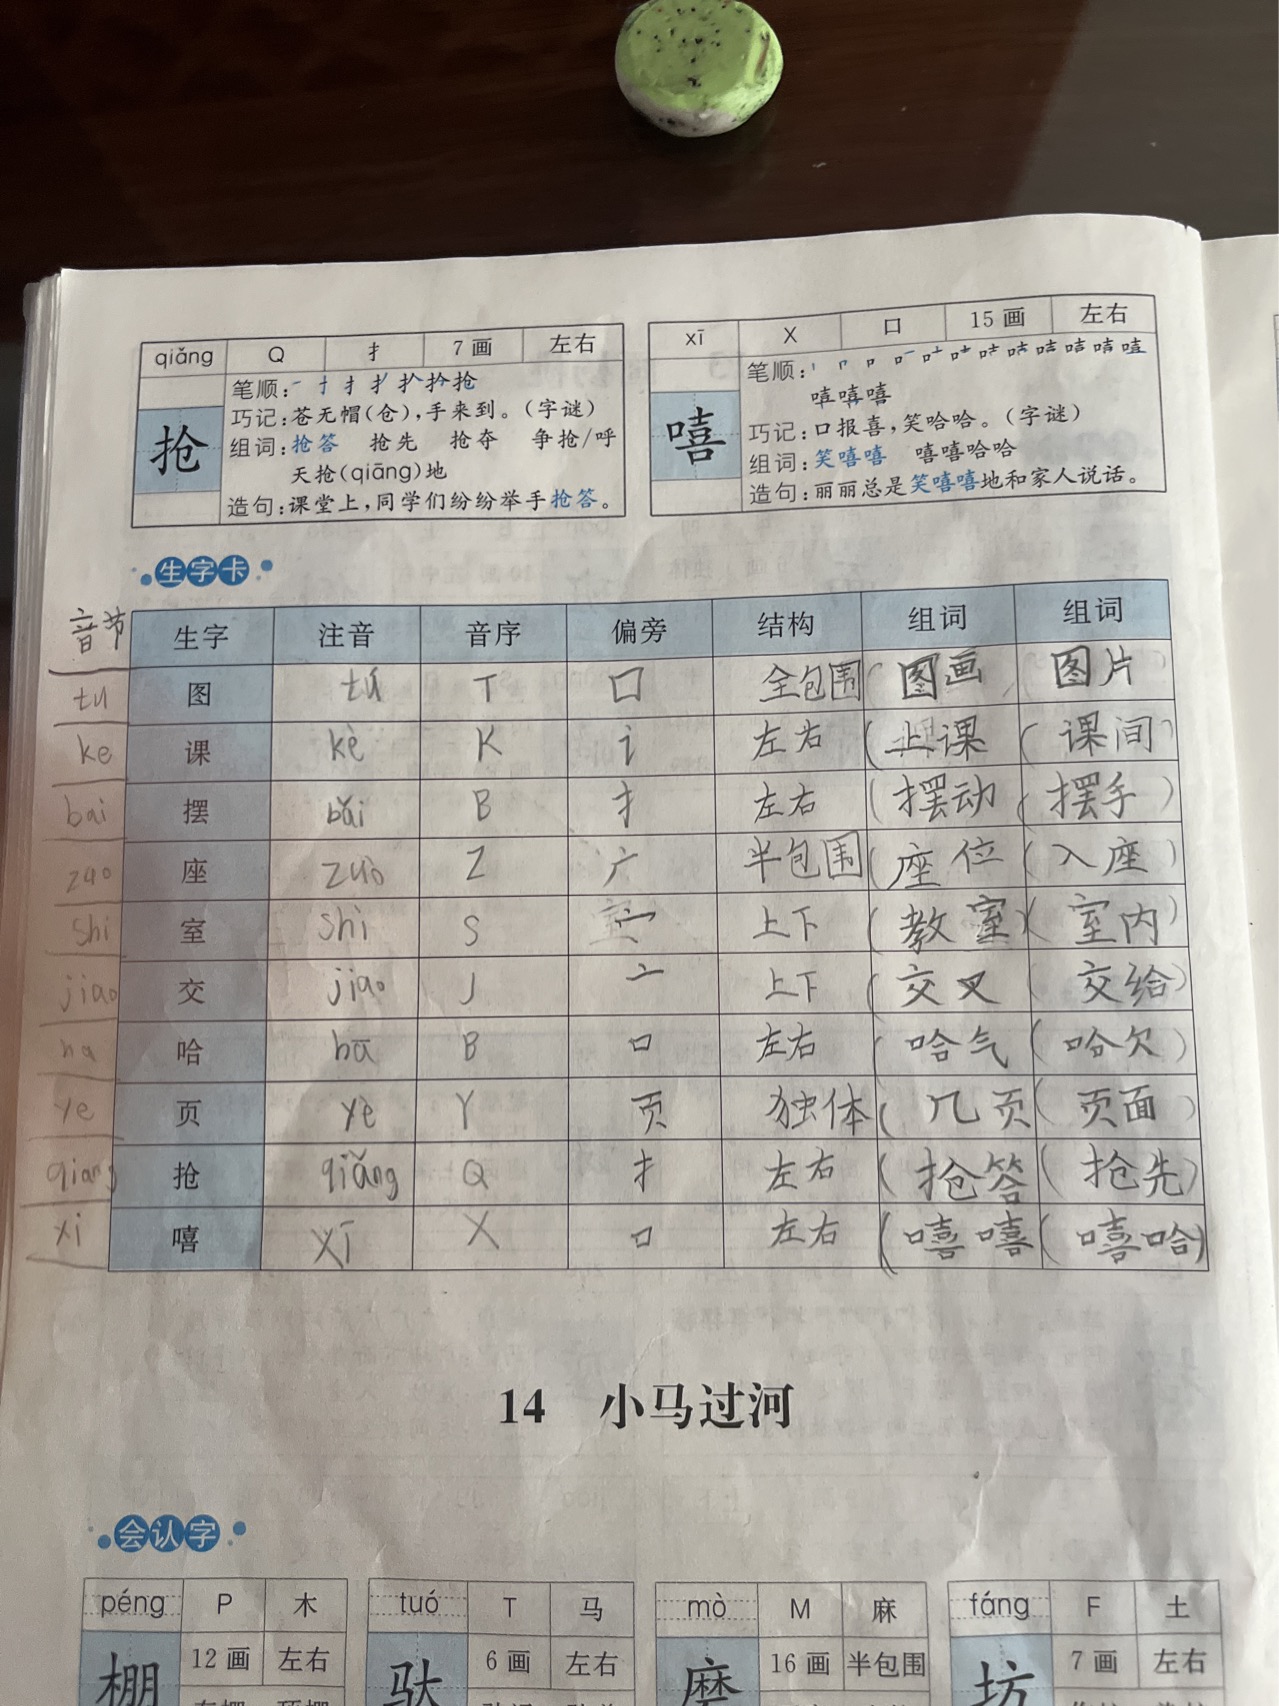 qiǎng Q 扌 7画 左右
抢
笔顺：一 十 扌 扌 扒 抡 抢
巧记：苍无帽（仓），手来到。（字谜）
组词：抢答 抢先 抢夺 争抢/呼
天抢(qiāng)地
造句：课堂上，同学们纷纷举手抢答。
xī X 口 15画 左右
嘻
笔顺：
嘻嘻嘻
巧记：口报喜，笑哈哈。（字谜）
组词：笑嘻嘻 嘻嘻哈哈
造句：丽丽总是笑嘻嘻地和家人说话。
生字卡
音节 生字 注音 音序 偏旁 结构 组词 组词
tu 图 tú T 囗 全包围 (图画 图片
ke 课 kè K 讠 左右 (上课 (课间)
bai 摆 bǎi B 扌 左右 (摆动 (摆手)
zuo 座 zuò Z 广 半包围 (座位 (入座)
shi 室 shì S 宀 上下 (教室) (室内)
jiao 交 jiao J 亠 上下 (交叉 (交给)
ha 哈 hā B 口 左右 (哈气 (哈欠)
ye 页 yè Y 页 独体 (几页 (页面)
qiang 抢 qiǎng Q 扌 左右 (抢答 (抢先)
xi 嘻 xī X 口 左右 (嘻嘻 (嘻哈)
14 小马过河
会认字
péng P 木
棚 12画 左右
tuó T 马
驮 6画 左右
mò M 麻
磨 16画 半包围
fáng F 土
坊 7画 左右